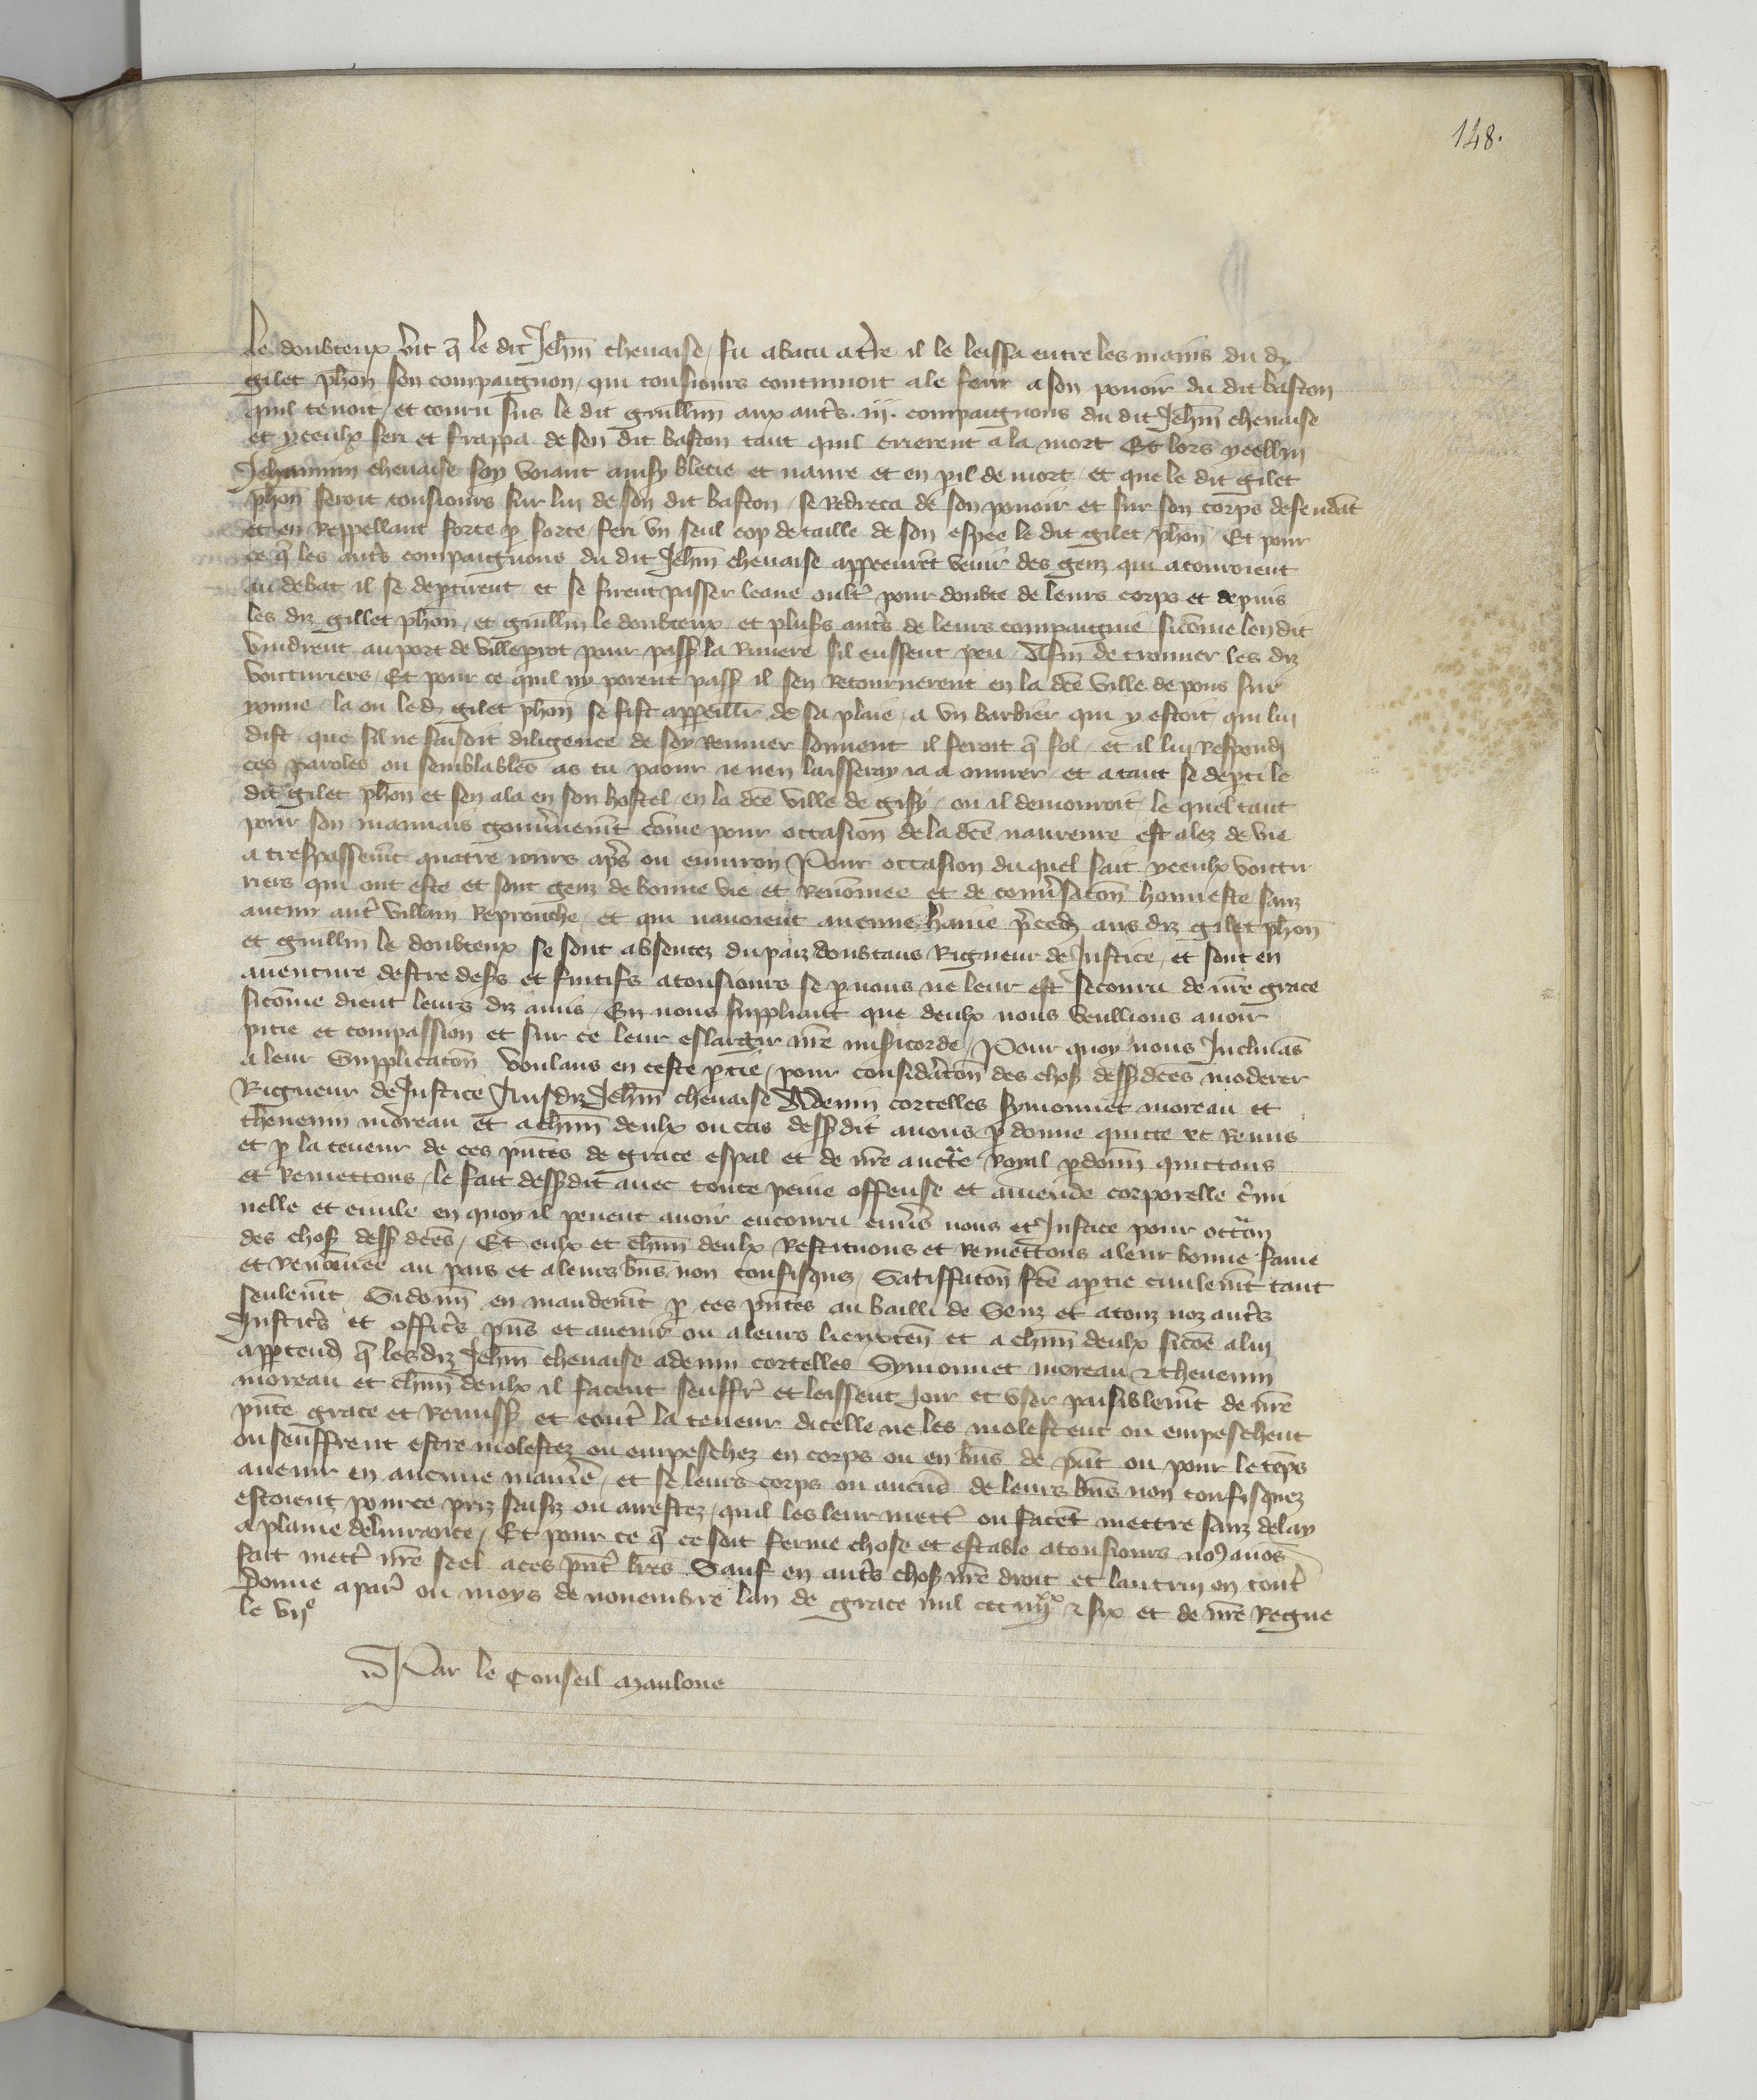 148.
le doubteux vit q̃ le dit Jehñ chevaise / fu abatu a t̃re il le leissa entre les mains du dz
gilet phõn son compaignon / qui tousiours continuoit a le ferir a son povoir du dit baston
quil tenoit / et couru sus le dit guillm̃ aux aut̃s .iij. compaignons du dit Jehñ chevaise
et yceulx feri et frappa de son dit baston tant quil crierent a la mort Et lors ycellui
Jehannin chevaise soy voiant ainsy blecie et navre et en p̱il de mort / et que le dit gilet
phõn feroit tousiours sur lui de son dit baston / se redreca de son povoir et sur son corps defendãt
et en reppellant force p̱ force / feri un seul cop de taille de son espee le dit gilet phõn / Et pour
ce q̃ les aut̃s compaignons du dit Jehñ chevaise apperceurẽt venir des genz qui acouroient
au debat il se dep̱tirent et se firent passer leaue oult̃ pour doubte de leurs corps et depuis
les dz gillet phõn / et guillm̃ le doubteux et plus̃s aut̃s de leurs compaignie sicõme len dit
vindrent au port de villep̱rot pour pass̃ la riviere sil eussent peu Afin de trouver les dz
voicturiers Et pour ce quil ny porent pass̃ il sen retournerent en la dc̃e ville de pons sur
yonne / la ou le dz gilet phõn se fist appeillier de sa plaie a un barbier qui y estoit qui lui
dist que sil ne faisoit diligence de soy remuer souvent il feroit q̃ fol / et il lui respondi
ces paroles ou semblables as tu paour ie nen laisseray ia a ouvrer / et a tant se dep̱ti le
dit gilet phõn et sen ala en son hostel / en la dc̃e ville de gisy / ou il demouroit le quel tant
pour son mauvais gouṽnem̃t cõme pour occasion de la dc̃e navreure est alez de vie
a trespassem̃t quatre iours ap̃s ou environ Pour occasion du quel fait yceulx voictu
riers qui ont este et sont genz de bonne vie et renõmee et de conṽsacõn honneste sanz
aucun aut̃ villain reprouche / et qui navoient aucune hayne p̃ced̃ aus dz gilet phõn
et guillm̃ le doubteux se sont absentez du paiz doubtans rigueur de Justice / et sont en
aventure destre des̃s et fuitifs a tousiours se p̱ nous ne leur est secouru de nr̃e grace
sicõme dient leurs dz amis / En nous suppliant que deulx nous veullions avoir
pitie et compassion et sur ce leur eslargir nr̃e mis̃icorde / Pour quoy nous Inclinãs
a leur supplicacõn voulans en ceste p̱tie / pour consid̃acõn des chos̃ dess̃dc̃es moderer
Rigueur de Justice Ausdiz Jehñ chevaise Adenin cortelles symonnet moreau et
thevenin moreau et a chũn deulx ou cas dess̃dit avons p̱donne quicte et remis
et p̱ la teneur de ces pñtes de grace esp̃al et de nr̃e auct̃e royal p̱donñ quictons
et remettons / le fait dess̃dit avec toute peine offense et amende corporelle c̃mi
nelle et civile en quoy il pevent avoir encouru env̾s nous et Justice pour occ̃on
des chos̃ dess̃ dc̃es / Et eulx et chũn deulx restituons et remettons a leur bonne fame
et renõmee au pais et a leurs bñs non confisquez / Satiffacõn fc̃e a p̱tie civilem̃t tant
seulem̃t Si donñ en mandem̃t p̱ ces pñtes au bailli de Senz et a touz noz aut̃s
Justic̃s et offic̃s pñs et avenir ou a leurs lieuxteñ et a chũn deulx sicõe a lui
app̱tend̃ q̃ les diz Jehñ chevaise adenin cortelles Symonnet moreau & thevenin
moreau et chũn deulx il facent seuffr̃ et leissent Joir et user paisiblem̃t de nr̃e
pñte grace et remiss̃ et cont̃ la teneur dicelle ne les molestent ou empeschent
ou seuffrent estre molestez ou empeschez en corps ou en bñs de pñt ou pour le tẽps
avenir en aucune manie̾ / et se leurs corps ou aucũs de leurs bñs non confisquez
estoient pource priz saisiz ou arrestez / quil les leur mett̃ ou facẽt mettre sanz delay
a plaine deliurance / Et pour ce q̃ ce soit ferme chose et estable a tousiours no⁹ avõs
fait mett̃ nr̃e seel a ces pñt̃ lr̃es Sauf en aut̃s chos̃ nr̃e droit et lautruy en tout̃
Donne a par̃ ou moys de novembre lan de grace mil ccc iiij^xx & six et de nr̃e Regne
le vij^e
Par le Conseil Maulone